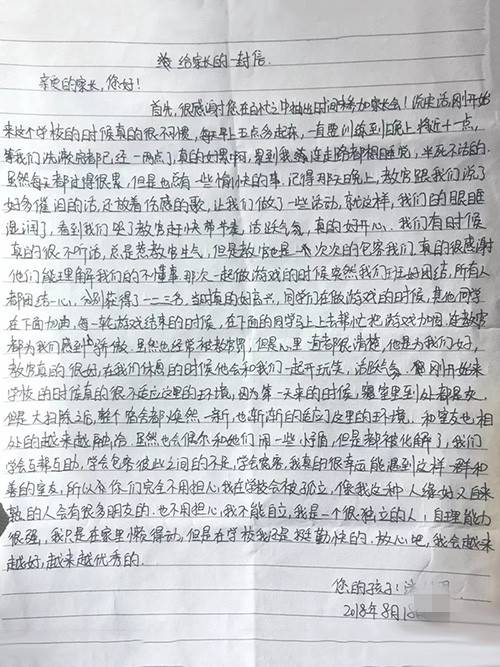 给家长的一封信
亲爱的家长，您好！
首先，很感谢您在百忙之中抽出时间来参加家长会！说实话刚开始
来这个学校的时候真的很不习惯，每天早上五点多起床，一直要训练到晚上将近十一点，
等我们洗漱完都已经一两点了，真的好累啊，累到我连走路都想睡觉，半死不活的。
虽然每天都过得很累，但是也总有一些愉快的事，记得那天晚上，教官跟我们说了
好多催泪的话，还放着伤感的歌，让我们做了一些活动，就这样，我们的眼眶
湿润了，看到我们哭了教官赶快带毕业，活跃气氛，真的好开心。我们有时候
真的很不听话，总是惹教官生气，但是教官也是一次次的包容我们，真的很感谢
他们能理解我们的不懂事，那次一起做游戏的时候突然我们班好团结，所有人
都团结一心，分别获得了一二三名，当时真的好高兴，同学们在做游戏的时候，其他同学
在下面加油，每一轮游戏结束的时候，在下面的同学马上去帮忙把游戏加固，连教官
都为我们感到骄傲。虽然也经常被教官罚，但是心里一直都很清楚，他是为我们好，
教官真的很好，在我们休息的时候他会和我们一起开玩笑，活跃气氛。刚开始来
学校的时候真的很不适应这里的环境，因为第一天来的时候，寝室里到处都是灰，
但是大扫除之后，整个宿舍都焕然一新，也渐渐的适应了这里的环境，和室友也相
处的越来越融洽，虽然也会偶尔和她们闹一些矛盾，但是都被化解了，我们
学会互帮互助，学会包容彼此之间的不足，学会宽容，我真的很幸运能遇到这样一群和
善的室友，所以令你们完全不用担心，我在学校会被孤立，像我这种人缘好又自来
熟的人会有很多朋友的，也不用担心，我不能自立，我是一个很独立的人，自理能力
很强，我只是在家里懒得动，但是在学校我还是挺勤快的，放心吧，我会越来
越好，越来越优秀的。
您的孩子：
2018年8月18